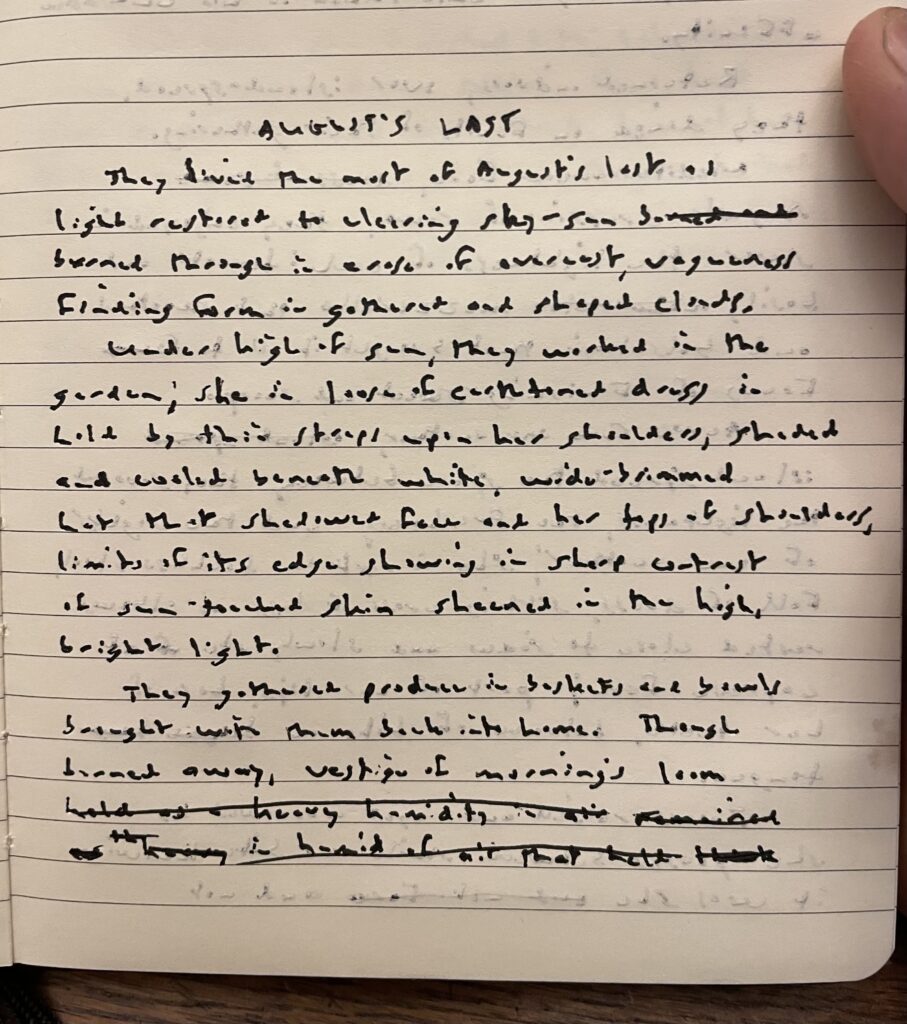 AUGUST'S LAST
They lived the most of August's last as
light restored to clearing sky-sun burned and
burned through in erose of overcast, vagueness
finding form in gathered and shaped clouds.
Under high of sun, they worked in the
garden; she in loose of earthtoned dress in
hold by thin straps upon her shoulders, shaded
and cooled beneath white, wide-brimmed
hat that shadowed face and her tops of shoulders,
limits of its edge showing in sharp contrast
of sun-touched skin sheened in the high,
bright light.
They gathered produce in baskets and bowls
brought with them back into home. Though
burned away, vestige of morning's loom
held as a heavy humidity in air remained
as heavy in humid of air that held